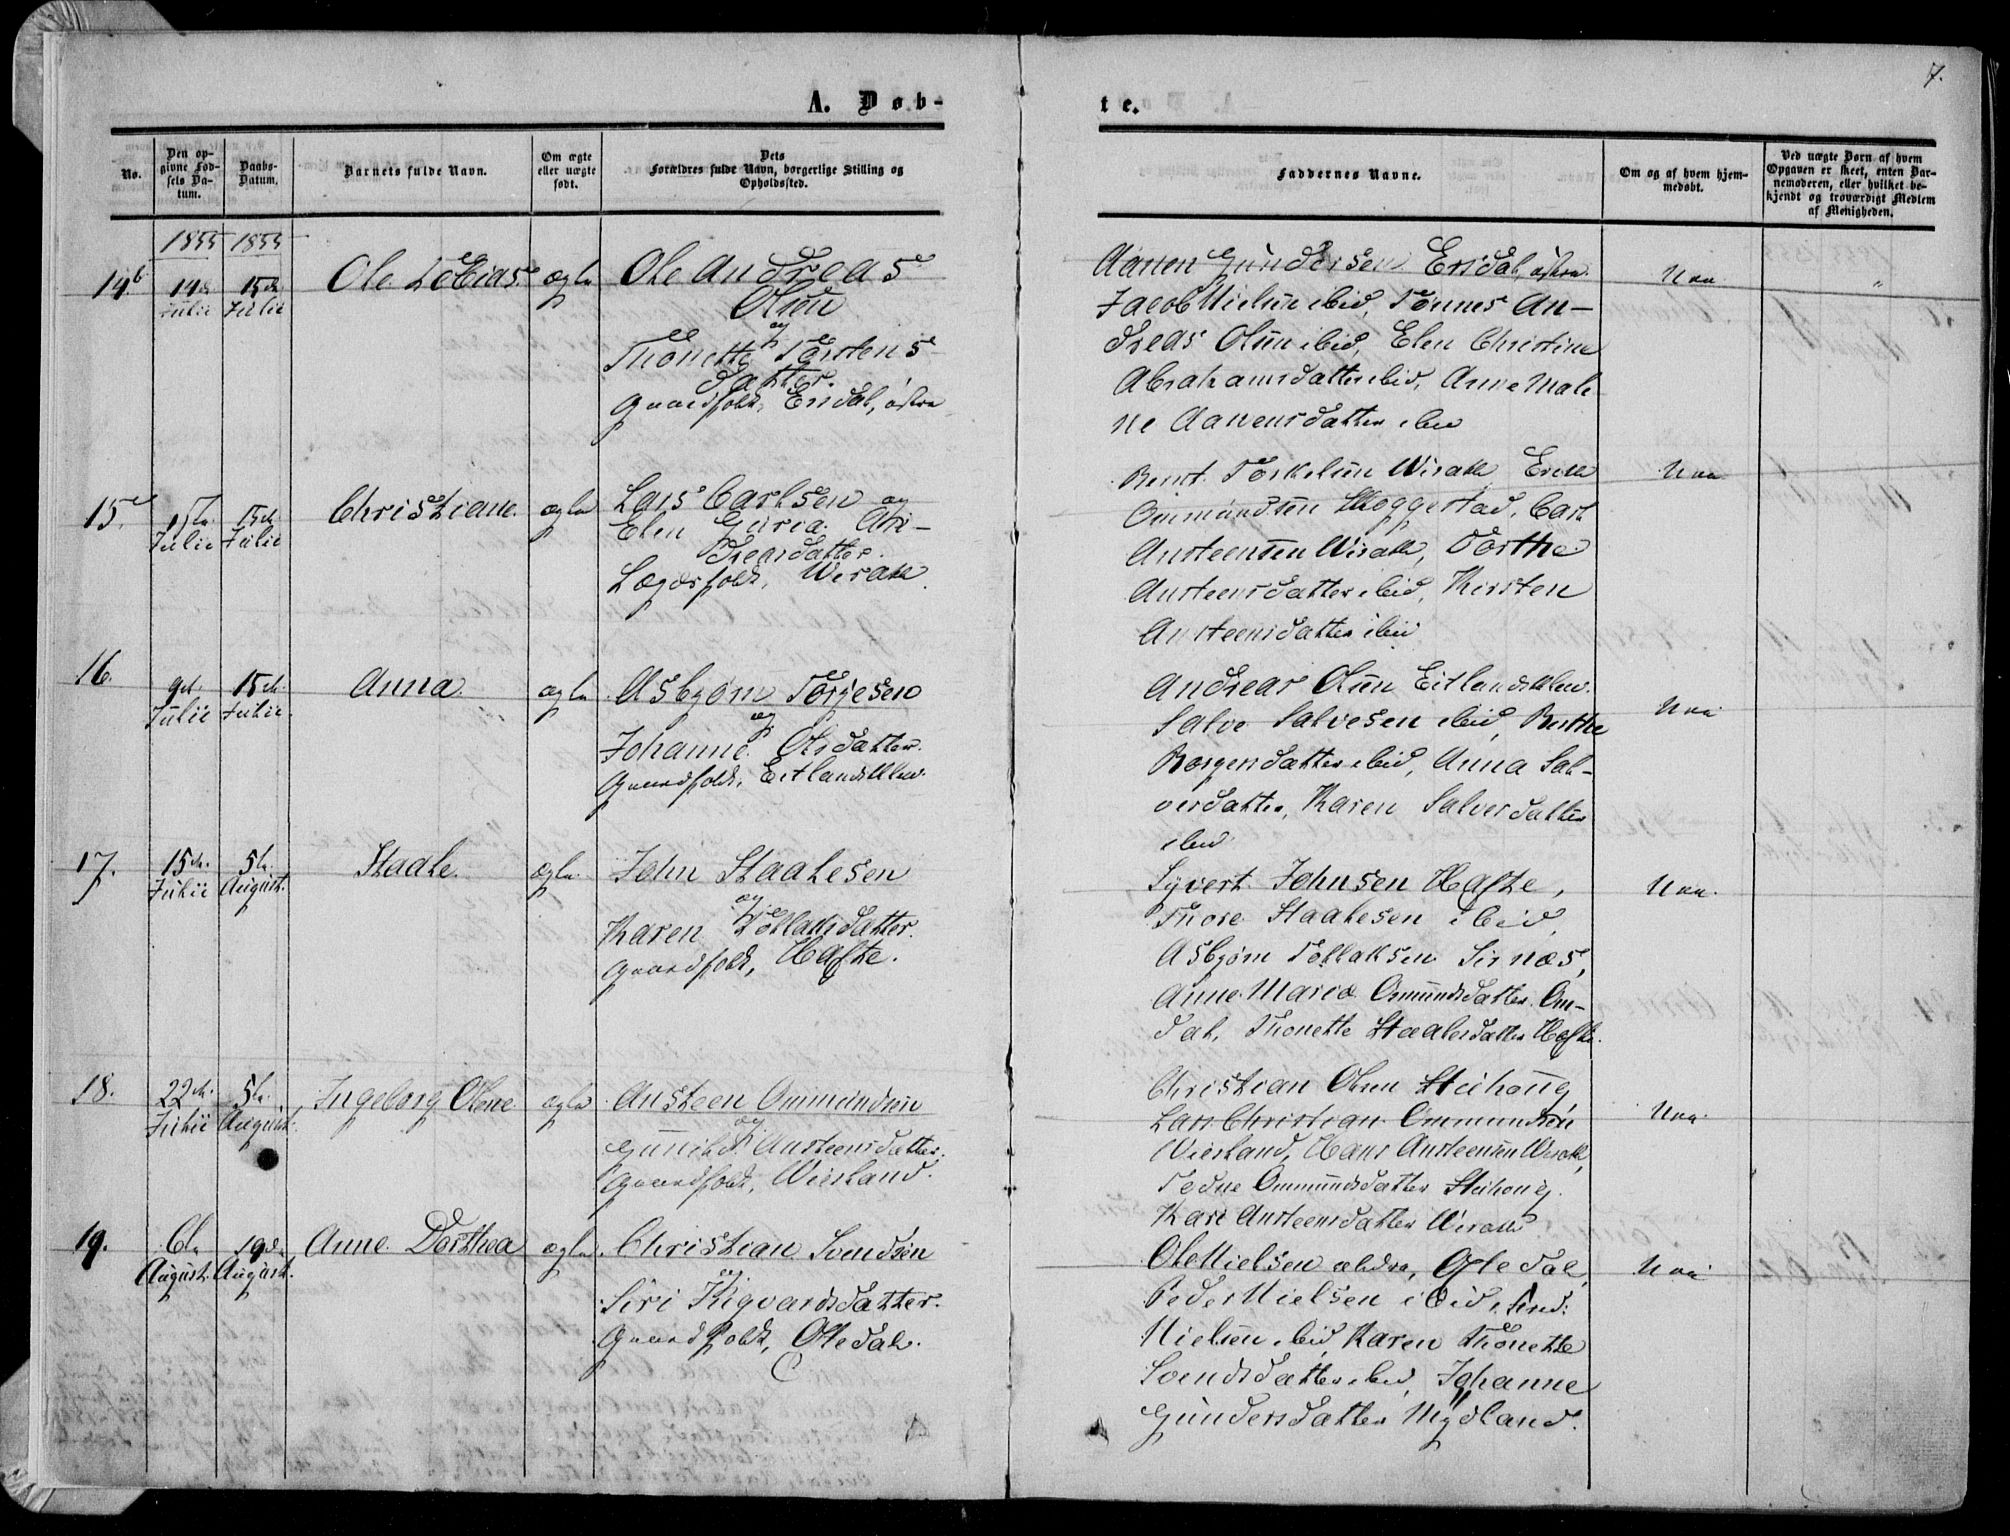 7.
A. Døb-
te.
No.
Den op-
givne Fød-
sels Da-
tum.
Daabs-
Datum.
Barnets fulde Navn.
Om ægte
eller uægte
født.
Dets
Forældres fulde Navn, borgerlige Stilling og
Opholdssted.
Faddernes Navne.
Om og af hvem hjem-
medøbt.
Ved uægte Børn af hvem
Opgaven er skeet, enten Bar-
nemoderen, eller hvilket be-
kjendt og troværdigt Medlem
af Menigheden.
1855 1855
14.b
Julii
15de
Julii
Ole Tobias
ægte
Ole Andreas
Olsen
og
Thonette Torstens
datter.
Gaardfolk, Ersdal, østre
Aanen Gundersen Ersdal, østre.
Jacob Nielsen ibid, Tønnes An-
dreas Olsen ibid, Elen Christine
Abrahamsdatter ibid, Anne Male
ne Aanensdatter ibid
Naa
"
15.
Julii
15de
Julii
Christiane.
ægte
Lars Carlsen og
Elen Guria An-
dreasdatter.
Lægdsfolk, Wirak.
Bernt Torkelsen Wirak, Erik
Ommundsen Skoggestad, Carl
Austeensen Wirak, Dorthe
Austeensdatter ibid, Kirsten
Austeensdatter ibid
Naa
16.
9de
Julii
15de
Julii.
Anna
ægte
Asbjørn Torjesen
og
Johanne Olsdatter.
Gaardfolk,
Andreas Olsen
Salve Salvesen ibid, Berthe
Børgersdatter ibid, Anna Sal-
vesdatter, Karen Salvesdatter
ibid
Naa
17.
15de
Julii
5te
August.
Staale.
ægte.
John Staalesen
og
Karen Tollaksdatter.
Gaardfolk, Hafte.
Syvert Johnsen Hafte,
Thore Staalesen ibid,
Asbjørn Tollaksen Sirnæs,
Anne Maria Ommundsdatter Om-
dal, Thonette Staalesdatter Hafte.
Naa.
18.
22de
Julii
5te
August.
Ingeborg Olene
ægte
Austeen Ommundsen
og
Gunild Austeensdatter.
Gaardfolk, Wiersland.
Christian Olsen Steihoug,
Lars Christian Ommundsen
Wiersland, Hans Austeensen Wirak,
Tedne Ommundsdatter Steihoug.
Kari Austeensdatter Wirak
Naa
19.
6te
August.
19de
August.
Anne Dorthea
ægte.
Christian Svendsen
og
Siri Sigvardsdatter.
Gaardfolk, Olledal.
Ole Nielsen ældre, Olledal,
Peder Nielsen ibid,
Nielsen ibid, Karen Thonette
Svendsdatter ibid, Johanne
Gundersdatter Mydland.
Naa